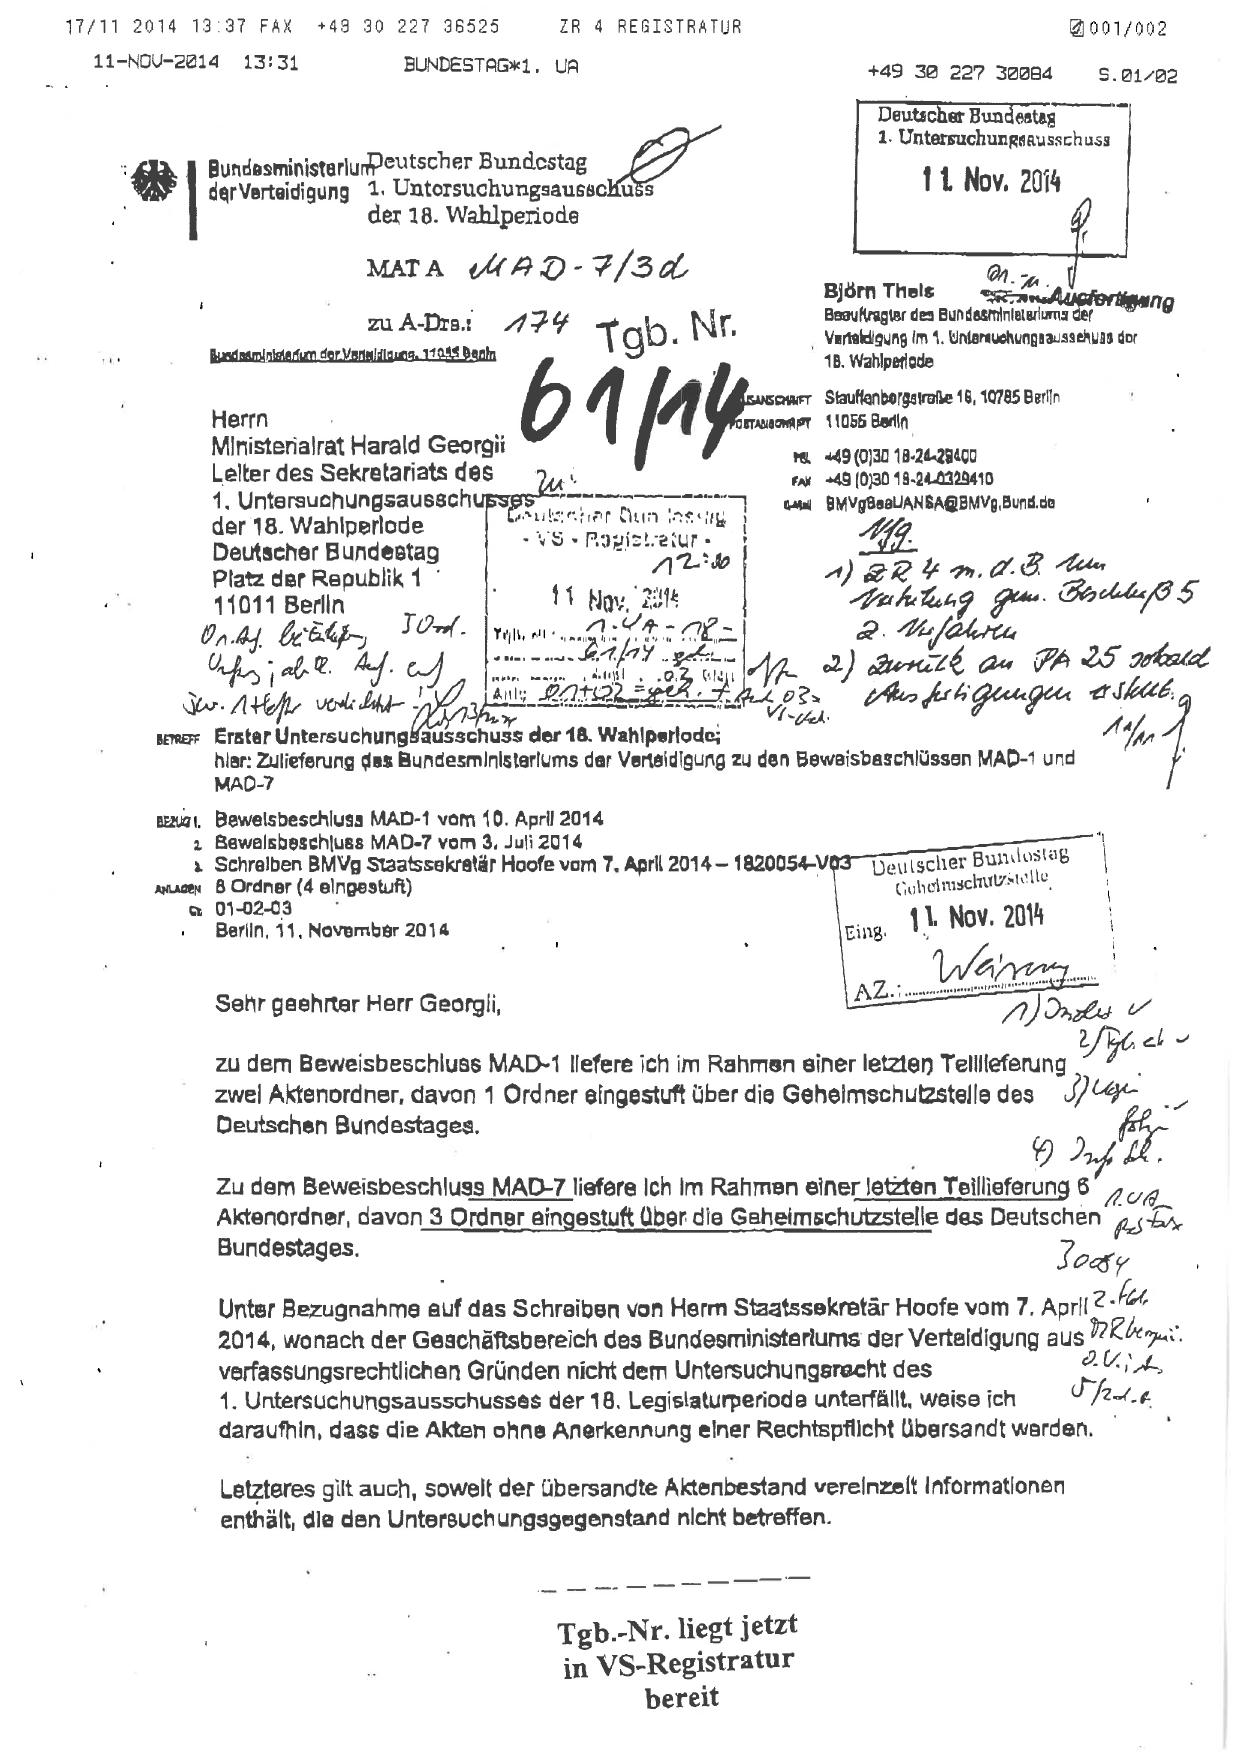 17/11 2014 13:37 FAX +49 30 227 36525 ZR 4 REGISTRATUR 001/002
11-NOV-2014 13:31 BUNDESTAG*1. UA +49 30 227 30084 S.01/02
Deutscher Bundestag
1. Untersuchungsausschuss
11. Nov. 2014
Bundesministerium
der Verteidigung
Deutscher Bundestag
1. Untersuchungsausschuss
der 18. Wahlperiode
MAT A MAD-7/3d
zu A-Drs.: 174
Tgb. Nr.
61/14
Ausfertigung
Björn Theis
Beauftragter des Bundesministeriums der
Verteidigung im 1. Untersuchungsausschuss der
18. Wahlperiode
Bundesministerium der Verteidigung, 11055 Berlin
Stauffenbergstraße 18, 10785 Berlin
POSTANSCHRIFT 11055 Berlin
TEL +49 (0)30 18-24-29400
FAX +49 (0)30 18-24-0329410
E-Mail BMVgBeaUANSA@BMVg.Bund.de
Herrn
Ministerialrat Harald Georgii
Leiter des Sekretariats des
1. Untersuchungsausschusses
der 18. Wahlperiode
Deutscher Bundestag
Platz der Republik 1
11011 Berlin
Deutscher Bundestag
- VS - Registratur -
12:30
11 Nov. 2014
1. UA - 18 -
61/14
1) ZR 4 m.d.B. um
gem. Beschluß 5
2. Verfahren
2) zurück an PA 25 sobald
Ausfertigungen erstellt.
BETREFF Erster Untersuchungsausschuss der 18. Wahlperiode;
hier: Zulieferung des Bundesministeriums der Verteidigung zu den Beweisbeschlüssen MAD-1 und
MAD-7
BEZUG 1. Beweisbeschluss MAD-1 vom 10. April 2014
2. Beweisbeschluss MAD-7 vom 3. Juli 2014
3. Schreiben BMVg Staatssekretär Hoofe vom 7. April 2014 – 1820054-V03
ANLAGEN 8 Ordner (4 eingestuft)
Gz 01-02-03
Berlin, 11. November 2014
Deutscher Bundestag
Geheimschutzstelle
Eing. 11. Nov. 2014
AZ.:
Sehr geehrter Herr Georgii,
zu dem Beweisbeschluss MAD-1 liefere ich im Rahmen einer letzten Teillieferung
zwei Aktenordner, davon 1 Ordner eingestuft über die Geheimschutzstelle des
Deutschen Bundestages.
Zu dem Beweisbeschluss MAD-7 liefere ich im Rahmen einer letzten Teillieferung 6
Aktenordner, davon 3 Ordner eingestuft über die Geheimschutzstelle des Deutschen
Bundestages.
30084
Unter Bezugnahme auf das Schreiben von Herrn Staatssekretär Hoofe vom 7. April
2014, wonach der Geschäftsbereich des Bundesministeriums der Verteidigung aus
verfassungsrechtlichen Gründen nicht dem Untersuchungsrecht des
1. Untersuchungsausschusses der 18. Legislaturperiode unterfällt, weise ich
daraufhin, dass die Akten ohne Anerkennung einer Rechtspflicht übersandt werden.
Letzteres gilt auch, soweit der übersandte Aktenbestand vereinzelt Informationen
enthält, die den Untersuchungsgegenstand nicht betreffen.
Tgb.-Nr. liegt jetzt
in VS-Registratur
bereit